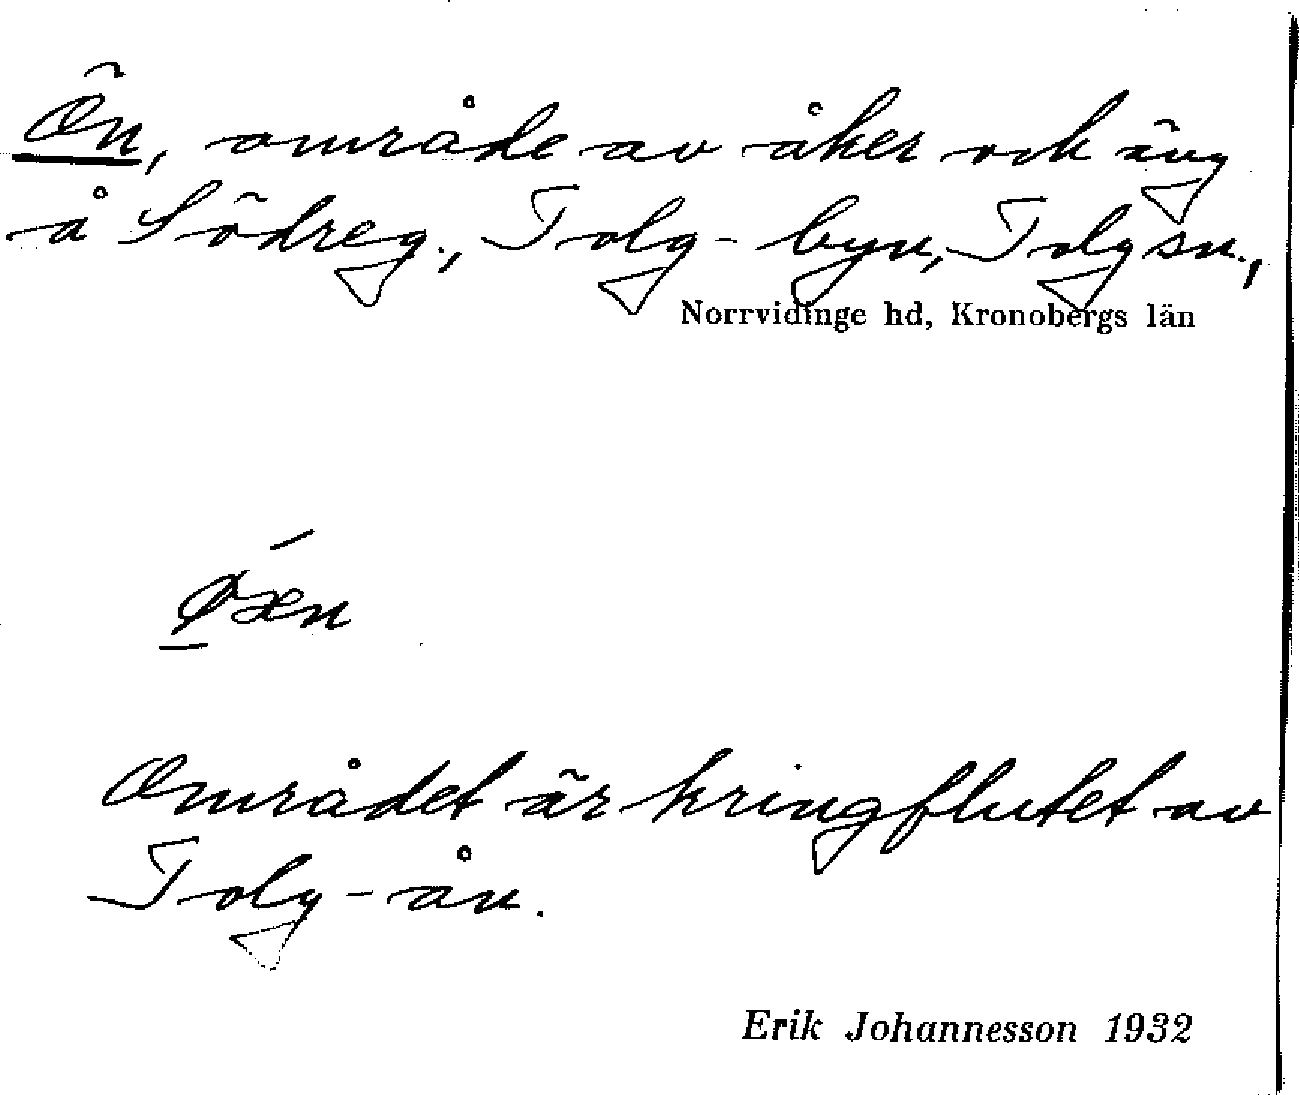 Ön, område av åker och äng
å Södreg., Tolg-byn, Tolg sn.,
Norrvidinge hd, Kronobergs län
Området är kringflutet av
Tolg-ån.
Erik Johannesson 1932